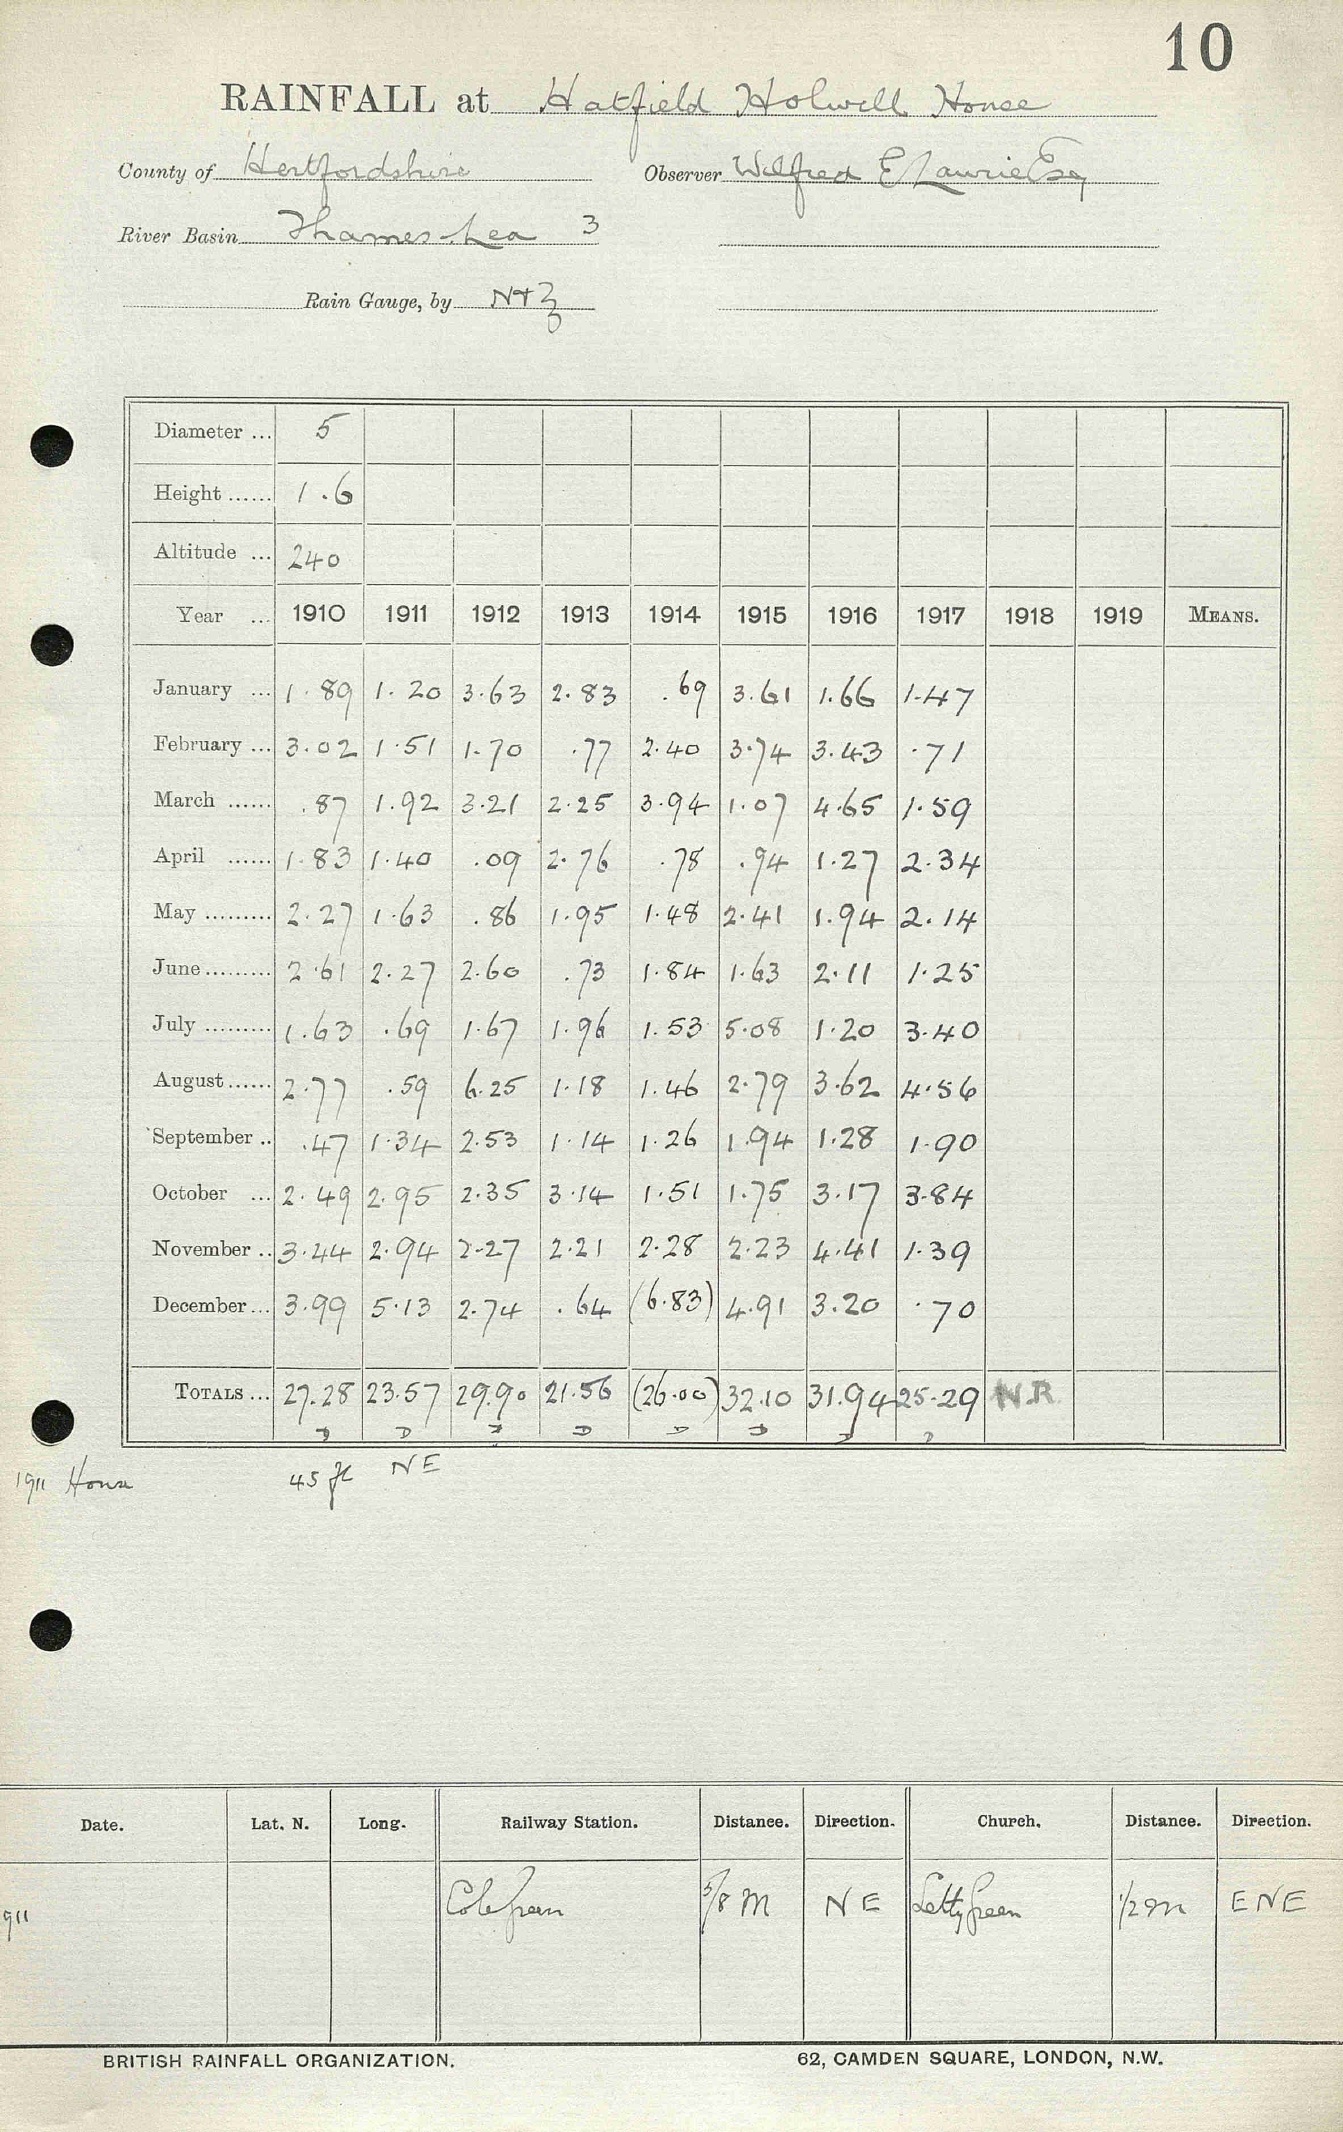 10
RAINFALL at Hatfield Holwell House
County of Hertfordshire Observer Wilfred E Laurie Esq
River Basin Thames-Lea 3
Rain Gauge, by N+Z
Diameter ... 5
Height ...... 1.6
Altitude ... 240
Year ... 1910 1911 1912 1913 1914 1915 1916 1917 1918 1919 MEANS.
January ... 1.89 1.20 3.63 2.83 .69 3.61 1.66 1.47
February ... 3.02 1.51 1.70 .77 2.40 3.74 3.43 .71
March ...... .87 1.92 3.21 2.25 3.94 1.07 4.65 1.59
April ...... 1.83 1.40 .09 2.76 .78 .94 1.27 2.34
May ......... 2.27 1.63 .86 1.95 1.48 2.41 1.94 2.14
June ......... 2.61 2.27 2.60 .73 1.84 1.63 2.11 1.25
July ......... 1.63 .69 1.67 1.96 1.53 5.08 1.20 3.40
August ...... 2.77 .59 6.25 1.18 1.46 2.79 3.62 4.56
September .. .47 1.34 2.53 1.14 1.26 1.94 1.28 1.90
October ... 2.49 2.95 2.35 3.14 1.51 1.75 3.17 3.84
November .. 3.44 2.94 2.27 2.21 2.28 2.23 4.41 1.39
December ... 3.99 5.13 2.74 .64 (6.83) 4.91 3.20 .70
TOTALS ... 27.28 23.57 29.90 21.56 (26.00) 32.10 31.94 25.29 N.R.
D D D D D D D D
1911 House 45 ft NE
Date. Lat. N. Long. Railway Station. Distance. Direction. Church. Distance. Direction.
911 Cole Green 5/8 M NE Letty Green 1/2 m ENE
BRITISH RAINFALL ORGANIZATION. 62, CAMDEN SQUARE, LONDON, N.W.